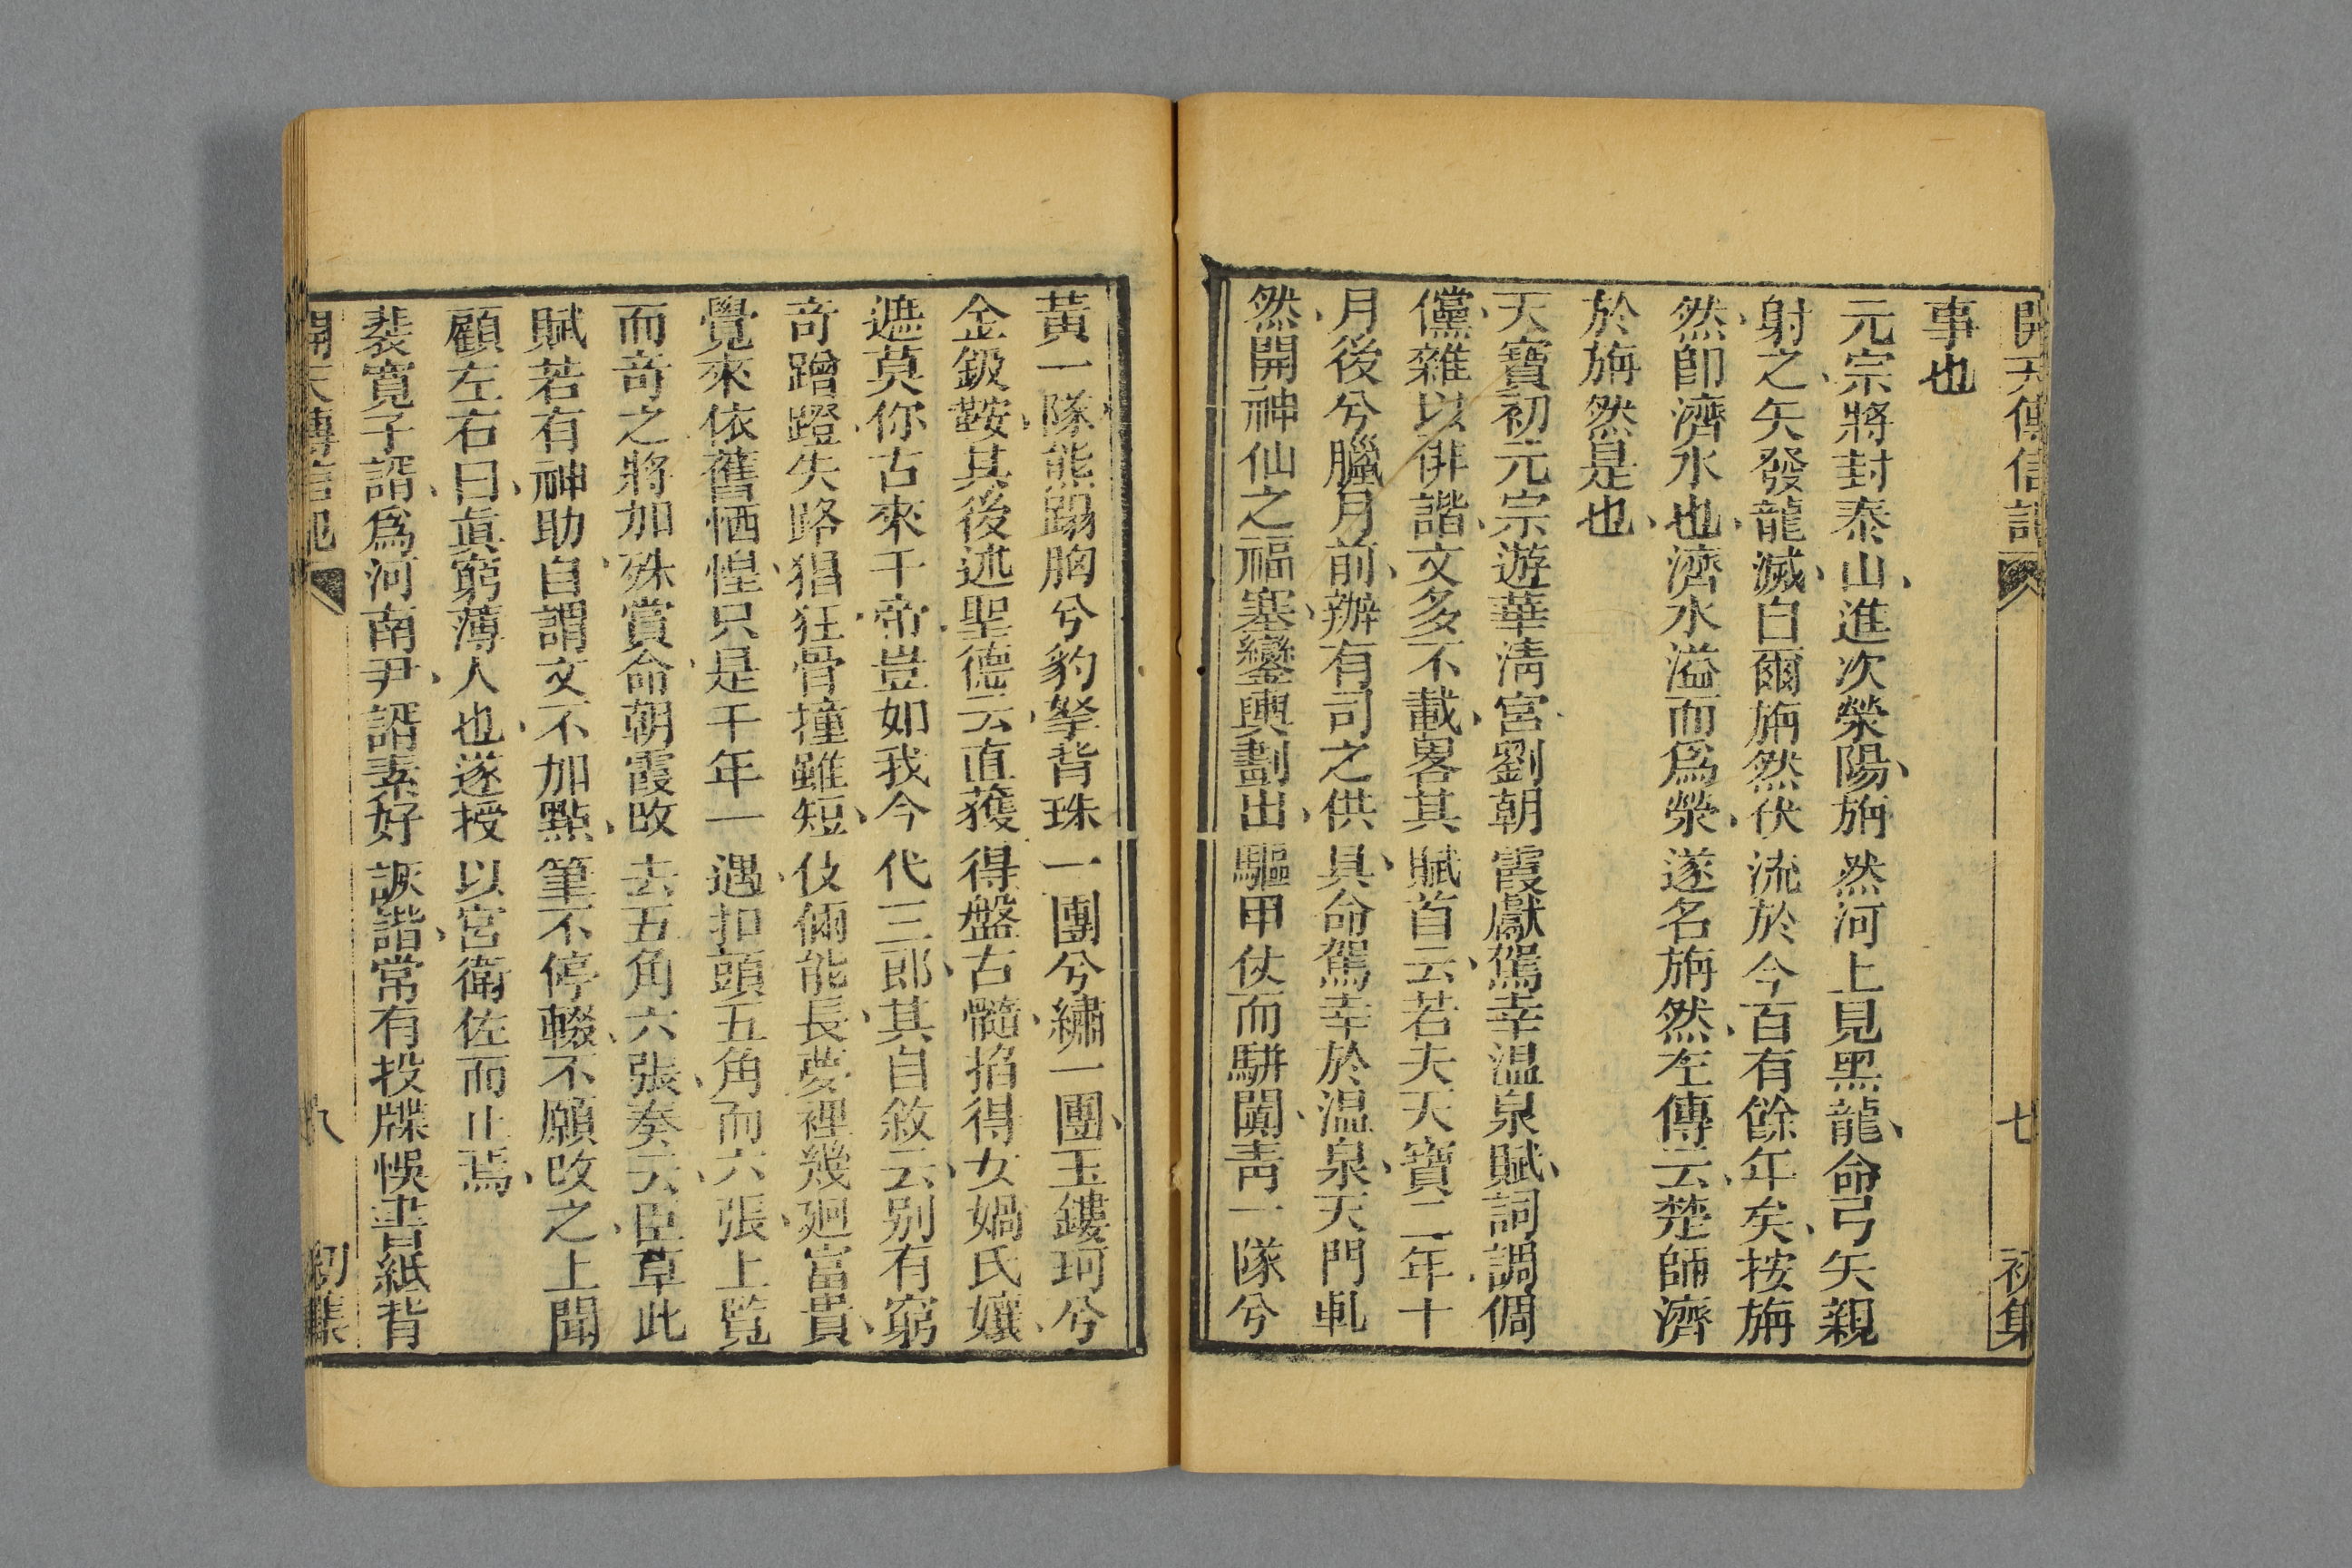 開天傳信記 七 初集
事也
元宗將封泰山進次滎陽旃然河上見黑龍命弓矢親
射之矢發龍滅自爾旃然伏流於今百有餘年矣按旃
然卽濟水也濟水溢而爲滎遂名旃然左傳云楚師濟
於旃然是也
天寶初元宗遊華淸宮劉朝霞獻駕幸温泉賦詞調倜
儻雜以俳諧文多不載畧其賦首云若夫天寶二年十
月後兮臘月前辦有司之供具命駕幸於温泉天門軋
然開神仙之福塞鑾輿劃出驅甲仗而駢闐靑一隊兮
黃一隊熊蹋胸兮豹拏背珠一團兮繡一團玉鏤珂兮
金鈒鞍其後述聖德云直獲得盤古髓掐得女媧氏孃
遮莫你古來千帝豈如我今代三郎其自敘云別有窮
奇蹭蹬失路猖狂骨撞雖短伎倆能長夢裡幾廻富貴
覺來依舊恓惶只是千年一遇扣頭五角而六張上覽
而奇之將加殊賞命朝霞改去五角六張奏云臣草此
賦若有神助自謂文不加點筆不停輟不願改之上聞
顧左右曰眞窮薄人也遂授以宮衛佐而止焉
裴寬子諝爲河南尹諝素好詼諧常有投牒悞書紙背
開天傳信記 八 初集